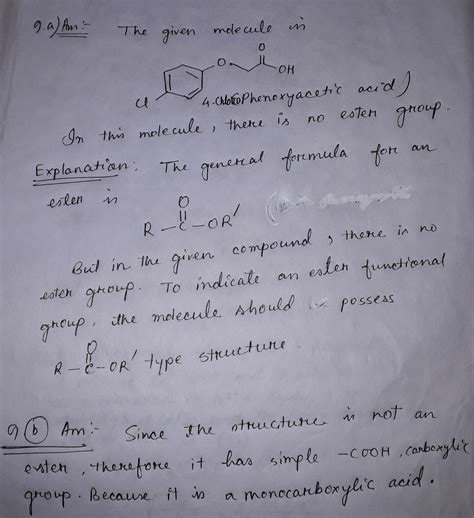 9.a) Ans:- The given molecule is
O
O OH
Cl
4-chlorophenoxyacetic acid)
In this molecule, there is no ester group.
Explanation: The general formula for an
ester is
O
R-C-OR'
But in the given compound, there is no
ester group. To indicate an ester functional
group, the molecule should possess
O
R-C-OR' type structure.
9 (b) Ans:- Since the structure is not an
ester, therefore it has simple -COOH, carboxylic
group. Because it is a monocarboxylic acid.